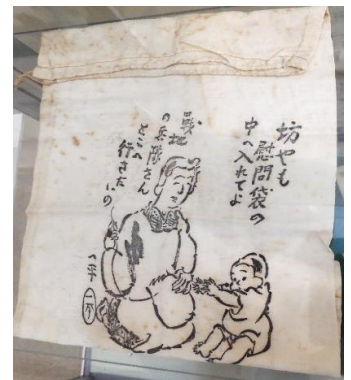 坊やも
慰問袋の
中へ入れてよ
戦地
の兵隊さん
とこへ
行きたいの
一平